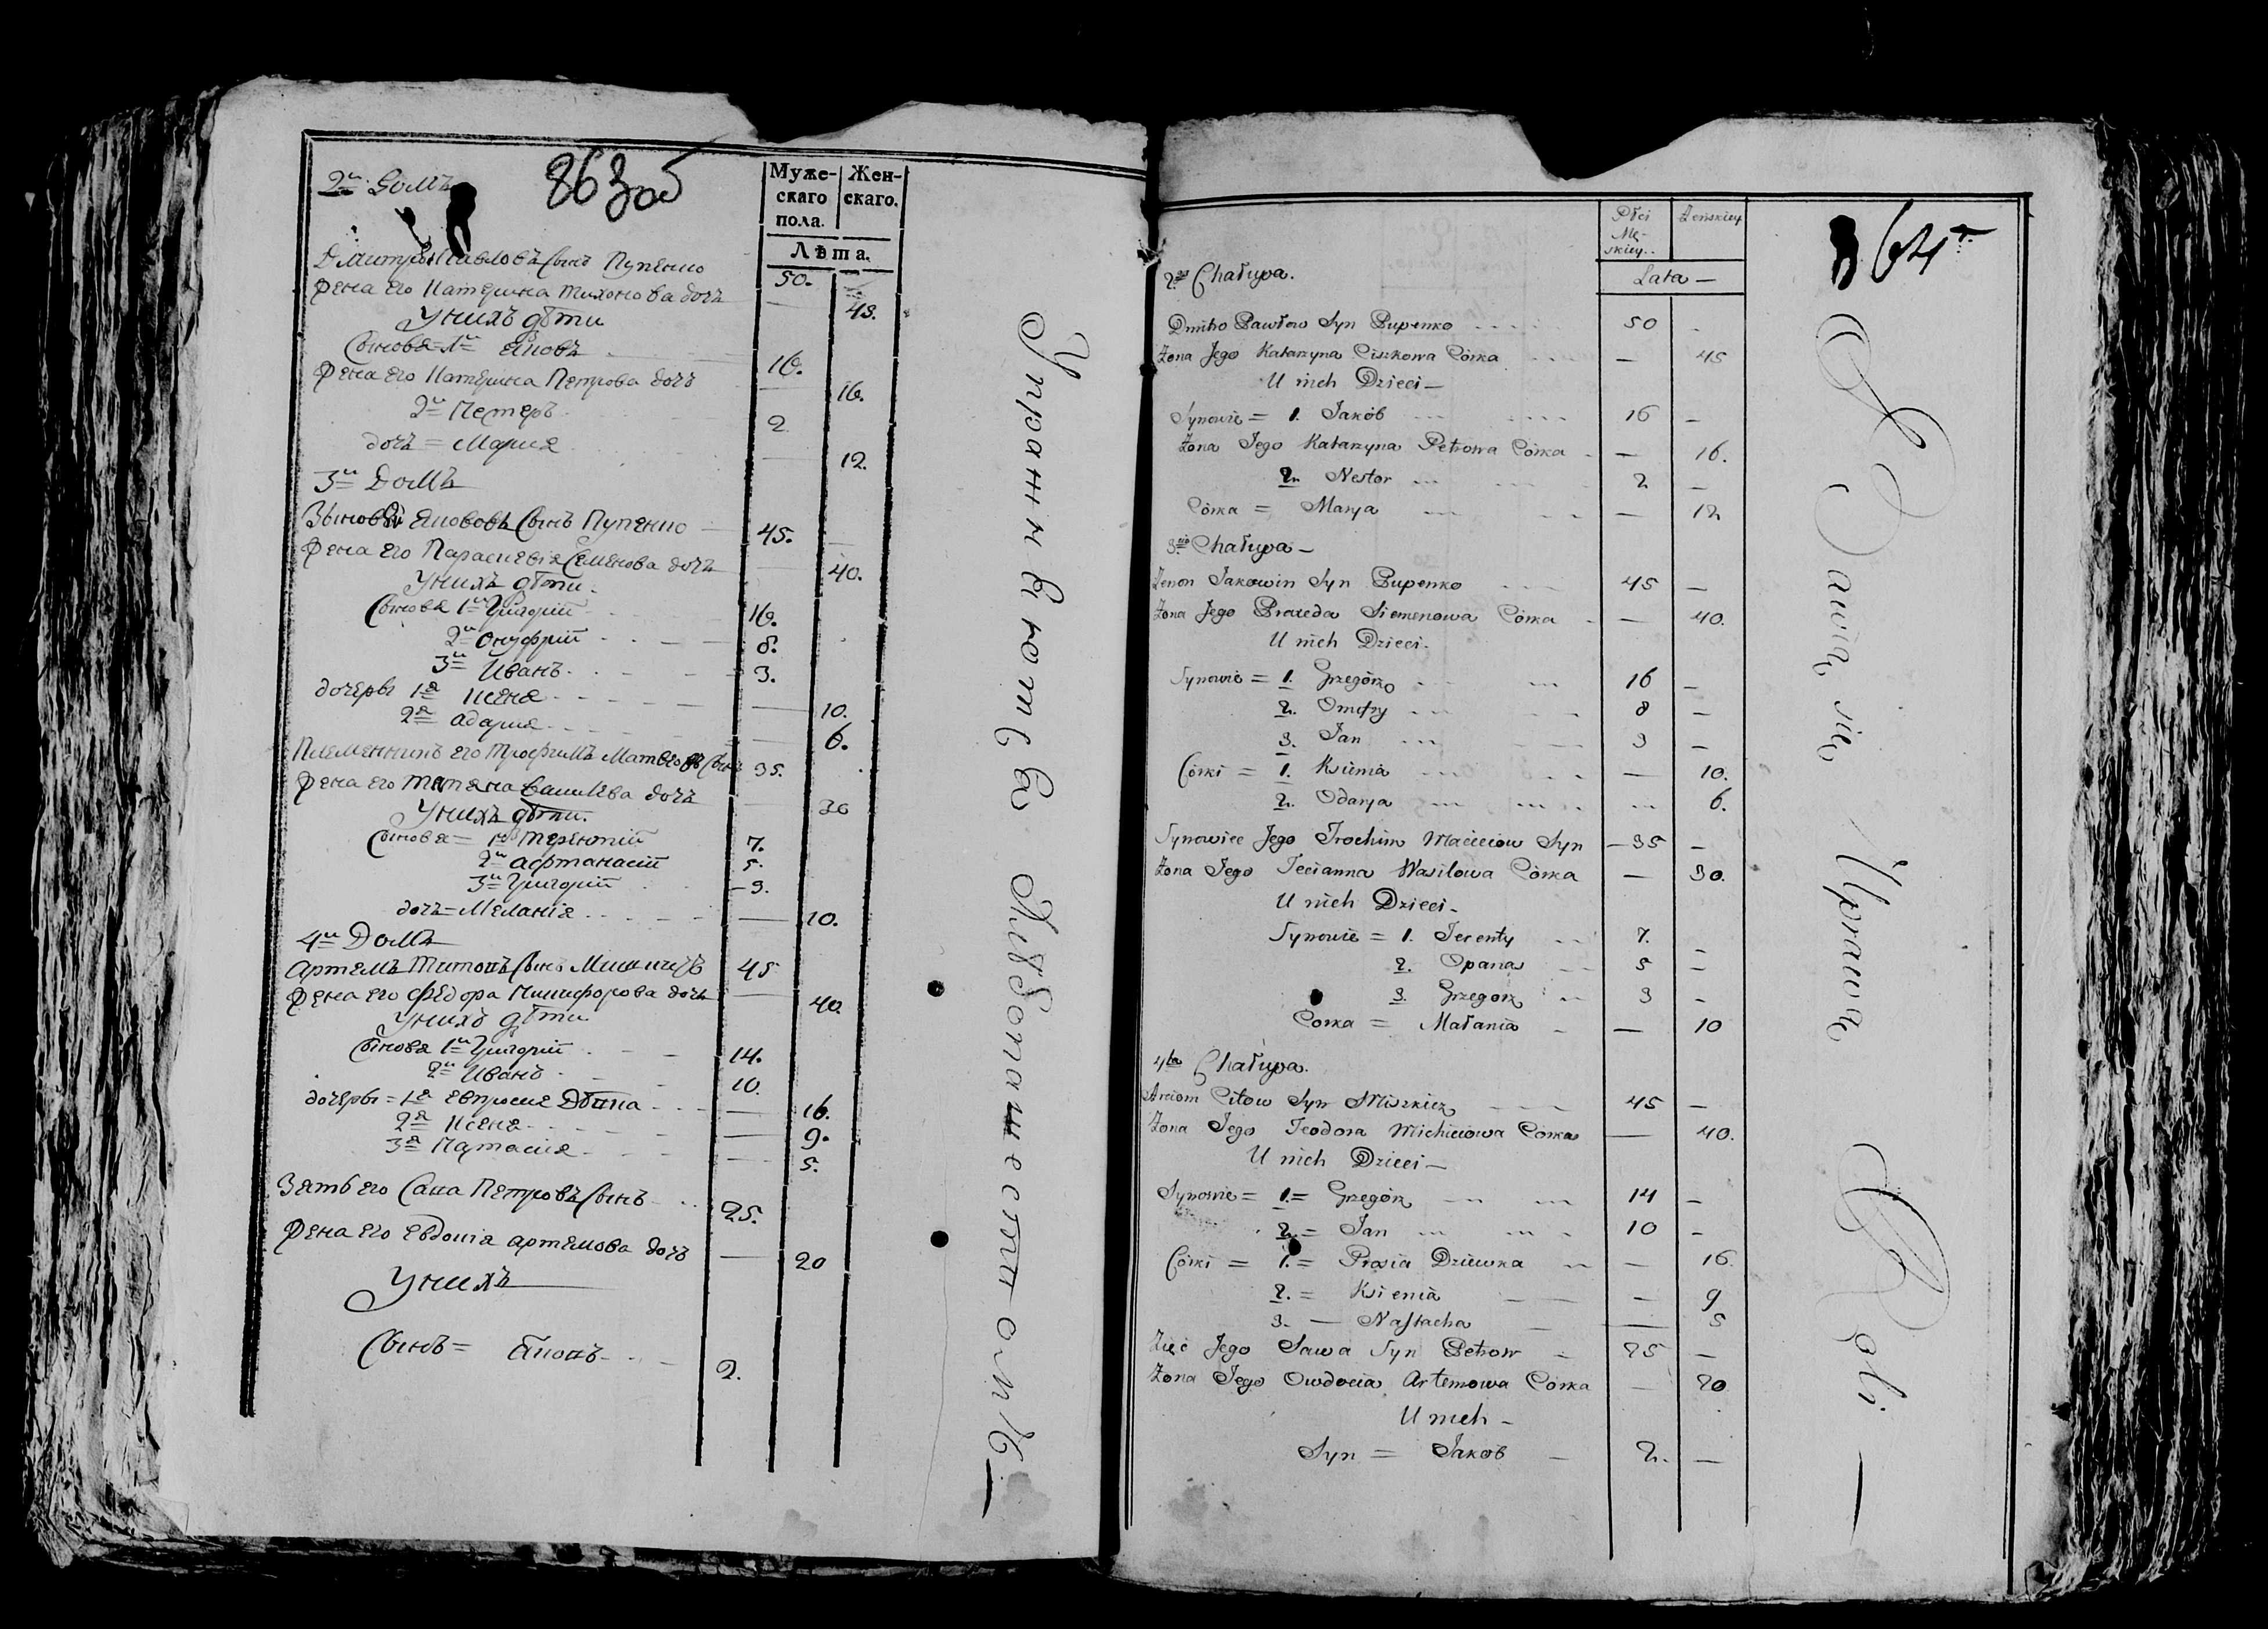 863 об
2й Домъ
Муже-
скаго
пола.
Жен-
скаго.
Лѣта.
Дмитро Павловъ Сынъ Пупенко 50.
Жена его Катерина Тихонова дочь — 45.
У нихъ дѣти
Сыновья = 1й Яковъ 16.
Жена его Катерина Петрова дочь — 16.
2й Нестеръ 2
дочь = Марья — 12.
3й Домъ
Зыновѣй Якововъ Сынъ Пупенко 45. —
Жена его Параскевія Семенова дочь — 40.
У нихъ дѣти.
Сыновья 1й Григорій 16.
2й Онуфрій 8.
3й Иванъ 3.
дочерьи 1я Ксеня — 10.
2я Адарья — 6.
Племянникъ его Трофимъ Сынъ 35.
Жена его Татьяна Василева дочь — 30
У нихъ дѣти.
Сыновья = 1й Терентій 7.
2й Афтанасій 5.
3й Григорій 3.
дочь = Меланія — 10.
4й Домъ
Артемъ Титовъ Сынъ 45
Жена его Федора Никифорова дочь — 40
У нихъ дѣти
Сыновья 1й Григорій 14.
2й Иванъ 10.
дочерьи = 1я Дѣвка — 16.
2я Ксеня — 9.
3я Настасия — 5.
Зять его Сава Петровъ Сынъ 25.
Жена его Евдокія Артемова дочь — 20
У нихъ
Сынъ = Яковъ 2.
Упражняются Хлѣбопашествомъ —
864
Płci
Mę-
skiey
Żeńskiey
Lata —
2ga Chałupa.
Dmitro Pawłow Syn Pupenko 50 -
Żona Jego Katarzyna Ciszkowa Córka — 45
U nich Dzieci —
Synowie = 1. Jakób 16 —
Żona Jego Katarzyna Petrowa Córka — 16.
2. Nestor 2 —
Córka = Marya — 12
3cia Chałupa —
Zenon Jakowin Syn Pupenko 45 —
Żona Jego Praxeda Siemenowa Córka — 40.
U nich Dzieci —
Synowie = 1. Grzegórz 16 —
2. Onufry 8 —
3. Jan 3 —
Córki = 1. Ksienia — 10.
2. Odarya 6.
Synowiec Jego Trochim Macieiow Syn — 35 —
Żona Jego Tecianna Wasilowa Córka — 30.
U nich Dzieci —
Synowie = 1. Terenty 7. —
2. Opanas 5 —
3. Grzegorz 3 -
Corka = Małania — 10
4ta Chałupa.
Arciom Citow Syn Miszkicz 45 —
Żona Jego Teodora Córka — 40.
U nich Dzieci —
Synowie = 1. = Grzegórz 14 —
2. = Jan 10 -
Córki = 1. = Prosia Dziewka — 16.
2. = Ksienia — 9
3. — Nastacha — 5
Zięć Jego Sawa Syn Petrow 25 —
Żona Jego Owdocia Artemowa Córka — 20
U nich —
Syn = Jakób 2. —
Bawią się Uprawą Roli —